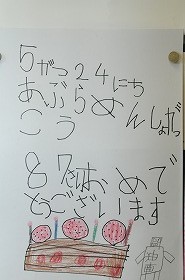 5がつ24にち
あぶらめん
こうしょねら
87さいおめで
とうございます
油面